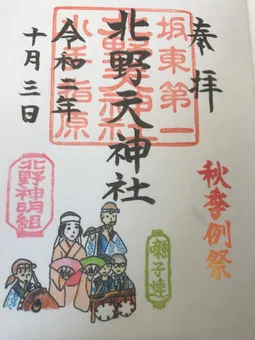 奉拝
坂東第一
北野天神社
小手指原
令和二年
十月三日
秋季例祭
囃子連
北野神明組